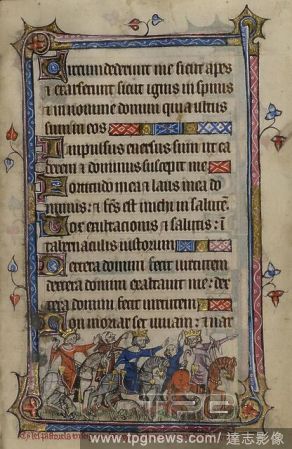 Circumdederunt me sicut apes
et exarserunt sicut ignis in spinis
et in nomine domini quia ultus
sum in eos
Impulsus eversus sum ut ca
derem et dominus suscepit me
Fortitudo mea et laus mea do
minus: et fc̄s est michi in salutē
Vox exultacionis et salutis: ī
tabernaculis iustorum
Dextera domini fecit virtutem
dextera domini exaltauit me: dex
tera domini fecit virtutem
Non moriar set viuam: et nar
TPG
www.tpgnews.com / 達志影像